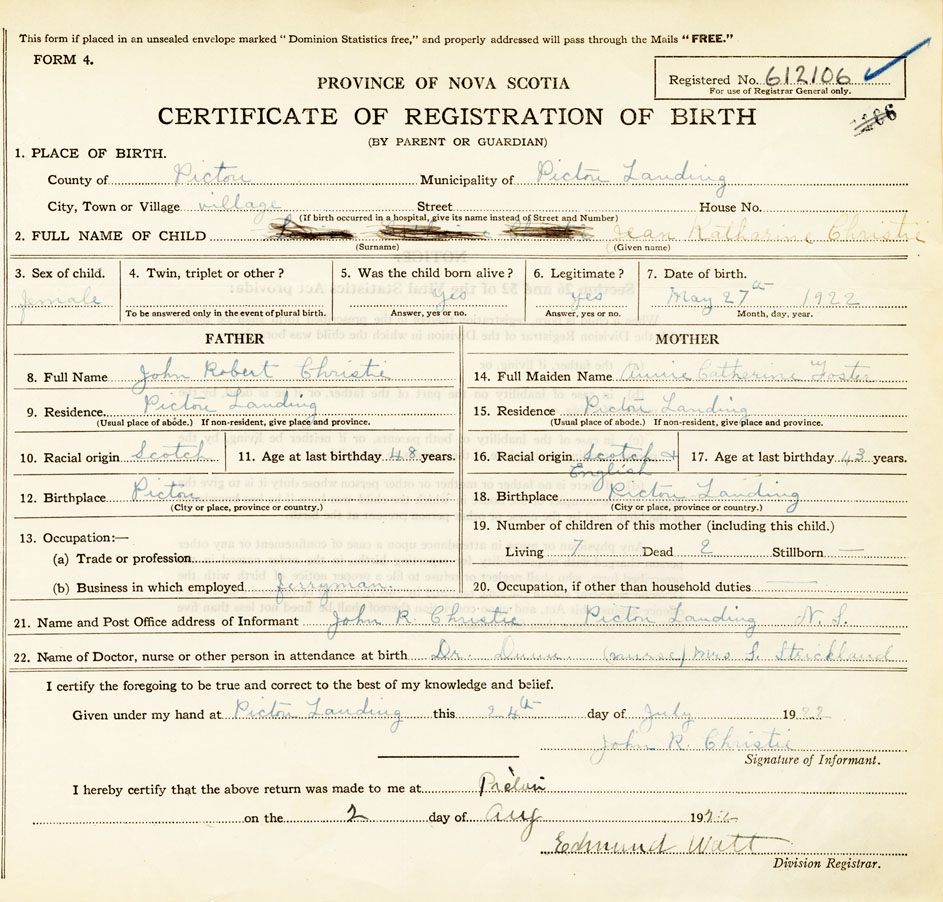 This form if placed in an unsealed envelope marked "Dominion Statistics free," and properly addressed will pass through the Mails "FREE."
FORM 4.
PROVINCE OF NOVA SCOTIA
Registered No. 612106
For use of Registrar General only.
CERTIFICATE OF REGISTRATION OF BIRTH
(BY PARENT OR GUARDIAN)
1. PLACE OF BIRTH.
County of Pictou Municipality of Pictou Landing
City, Town or Village village Street House No.
(If birth occurred in a hospital, give its name instead of Street and Number)
2. FULL NAME OF CHILD Jean Katharine Christie
(Surname) (Given name)
3. Sex of child. 4. Twin, triplet or other? 5. Was the child born alive? 6. Legitimate? 7. Date of birth.
female yes yes May 27th 1922
To be answered only in the event of plural birth. Answer, yes or no. Answer, yes or no. Month, day, year.
FATHER MOTHER
8. Full Name John Robert Christie 14. Full Maiden Name Annie Catherine Foster
9. Residence Pictou Landing 15. Residence Pictou Landing
(Usual place of abode.) If non-resident, give place and province. (Usual place of abode.) If non-resident, give place and province.
10. Racial origin Scotch 11. Age at last birthday 48 years. 16. Racial origin Scotch + English 17. Age at last birthday 43 years.
12. Birthplace Pictou 18. Birthplace Pictou Landing
(City or place, province or country.) (City or place, province or country.)
13. Occupation:— 19. Number of children of this mother (including this child.)
(a) Trade or profession Living 7 Dead 2 Stillborn —
(b) Business in which employed ferryman 20. Occupation, if other than household duties
21. Name and Post Office address of Informant John R. Christie Pictou Landing N. S.
22. Name of Doctor, nurse or other person in attendance at birth Dr. Dunn (nurse) Mrs S. Strickland
I certify the foregoing to be true and correct to the best of my knowledge and belief.
Given under my hand at Pictou Landing this 24th day of July 1922
John R. Christie
Signature of Informant.
I hereby certify that the above return was made to me at
on the 2 day of Aug 1922
Edmund Watt
Division Registrar.